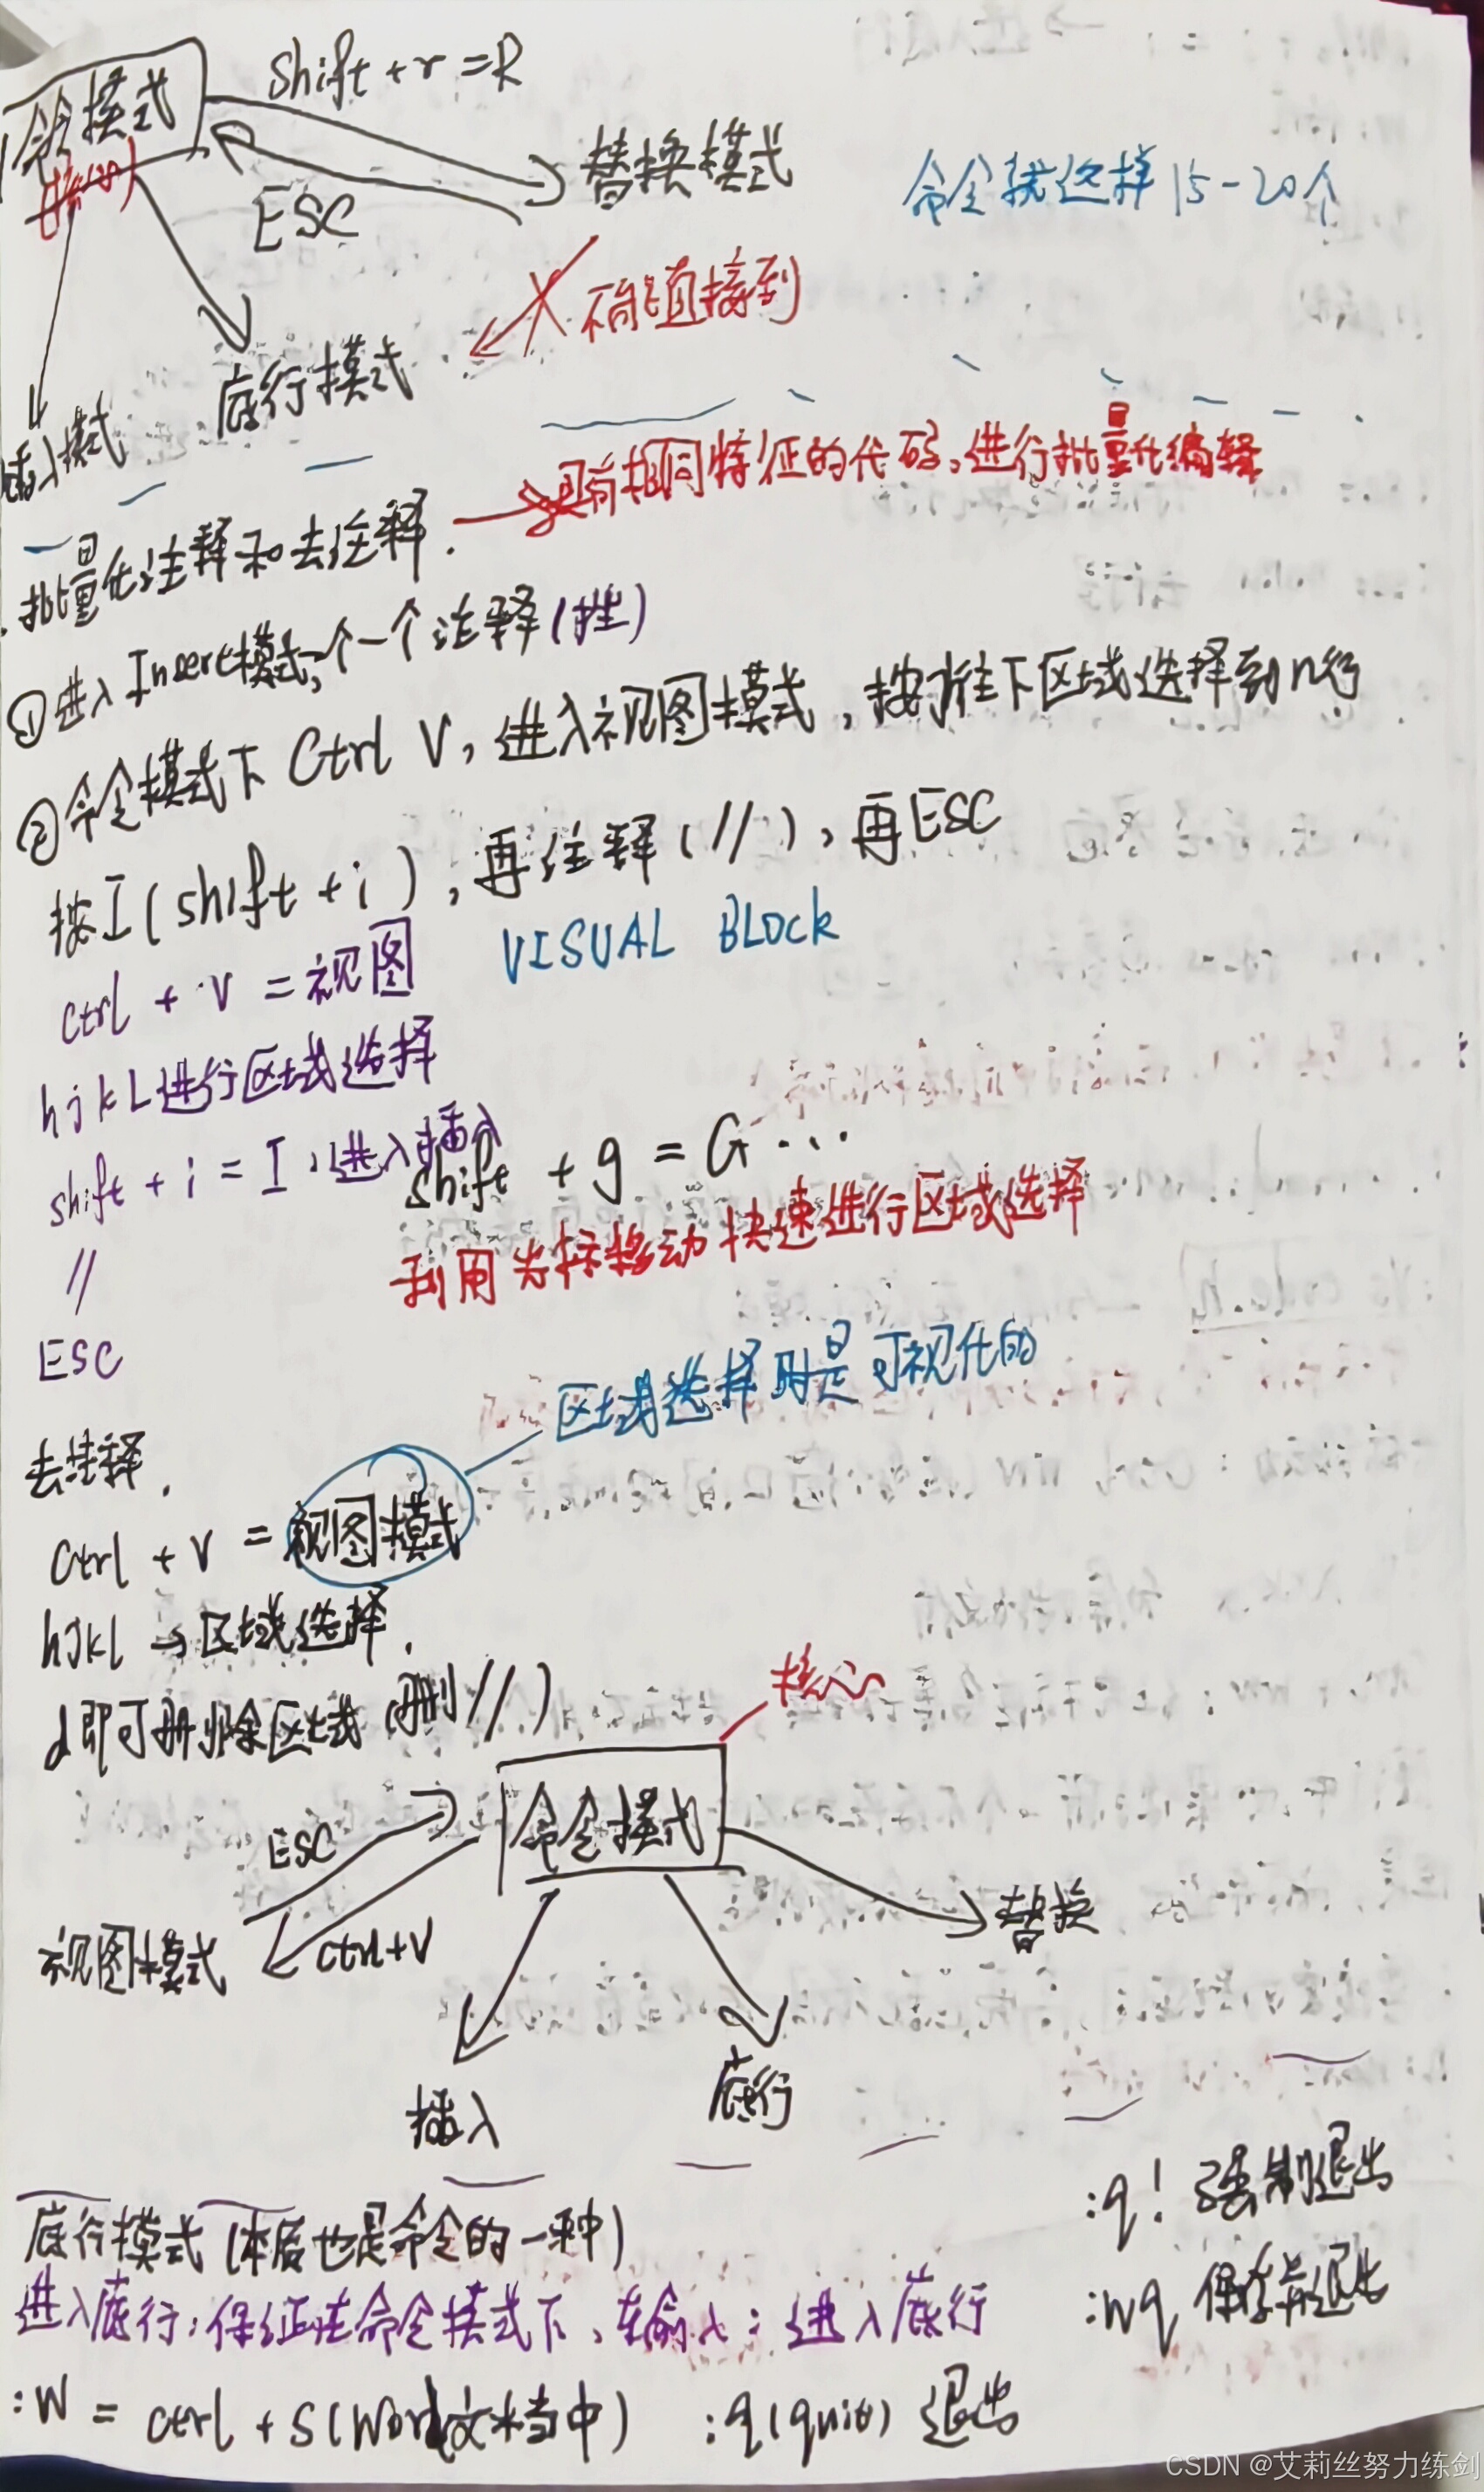 Shift + r = R
命令模式
替换模式
命令就这样15-20个
ESC
不能直接到
底行模式
插入模式
具有相同特征的代码,进行批量化编辑
批量化注释和去注释.
①进入Insert模式,一个一个注释(挫)
②命令模式下 Ctrl V, 进入视图模式, 按j往下区域选择到n行
按I(shift + i), 再注释(//), 再ESC
VISUAL BLOCK
ctrl + v = 视图
hjkL进行区域选择
shift + i = I, 进入插入
shift + g = G ...
利用光标移动快速进行区域选择
//
ESC
区域选择时是可视化的
去注释.
Ctrl + v = 视图模式
hjkl → 区域选择.
d即可删除区域(删//)
核心
命令模式
ESC
替换
视图模式
ctrl+v
插入
底行
:q! 强制退出
底行模式(本质也是命令的一种)
:wq 保存并退出
进入底行:保证在命令模式下,在输入:进入底行
:W = ctrl + S(Word文档当中)
:q(quit) 退出
CSDN @艾莉丝努力练剑